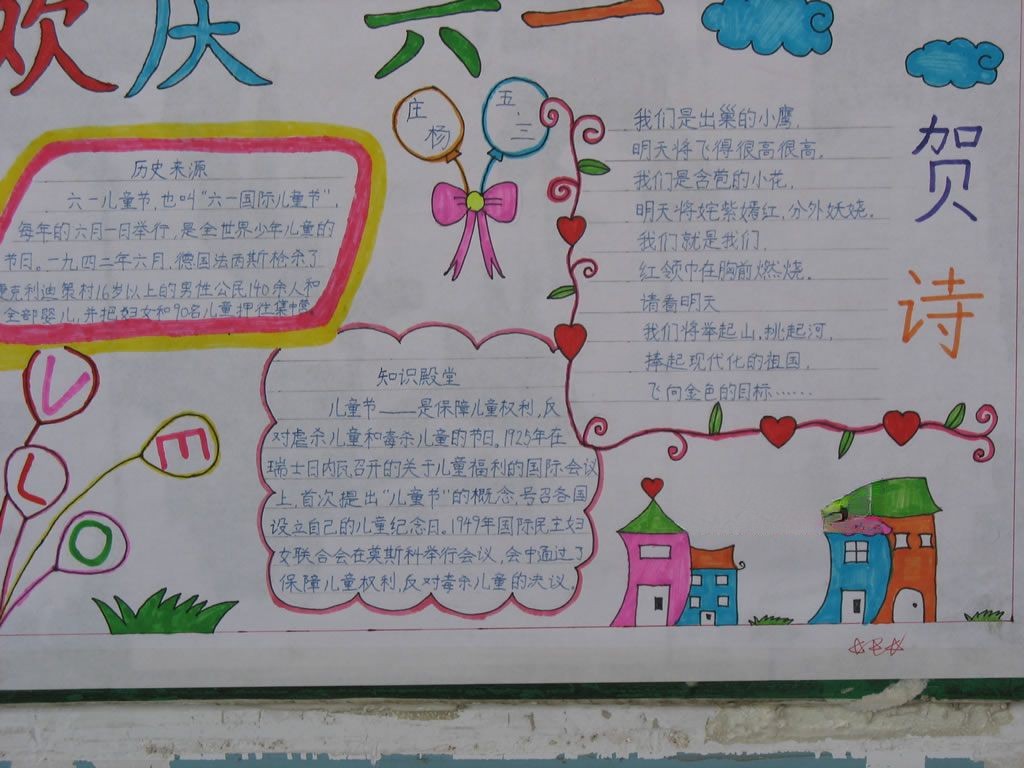 欢庆六一
庄杨
五.三
历史来源
六一儿童节,也叫“六一国际儿童节”,
每年的六月一日举行,是全世界少年儿童的
节日。一九四二年六月,德国法西斯枪杀了
捷克利迪策村16岁以上的男性公民140余人和
全部婴儿,并把妇女和90名儿童押往集中营
L
O
V
E
知识殿堂
儿童节——是保障儿童权利,反
对虐杀儿童和毒杀儿童的节日。1925年在
瑞士日内瓦召开的关于儿童福利的国际会议
上,首次提出“儿童节”的概念,号召各国
设立自己的儿童纪念日。1949年国际民主妇
女联合会在莫斯科举行会议,会中通过了
保障儿童权利,反对毒杀儿童的决议.
贺诗
我们是出巢的小鹰,
明天将飞得很高很高.
我们是含苞的小花,
明天将姹紫嫣红,分外妖娆.
我们就是我们,
红领巾在胸前燃烧.
请看明天
我们将举起山,挑起河,
捧起现代化的祖国,
飞向金色的目标……